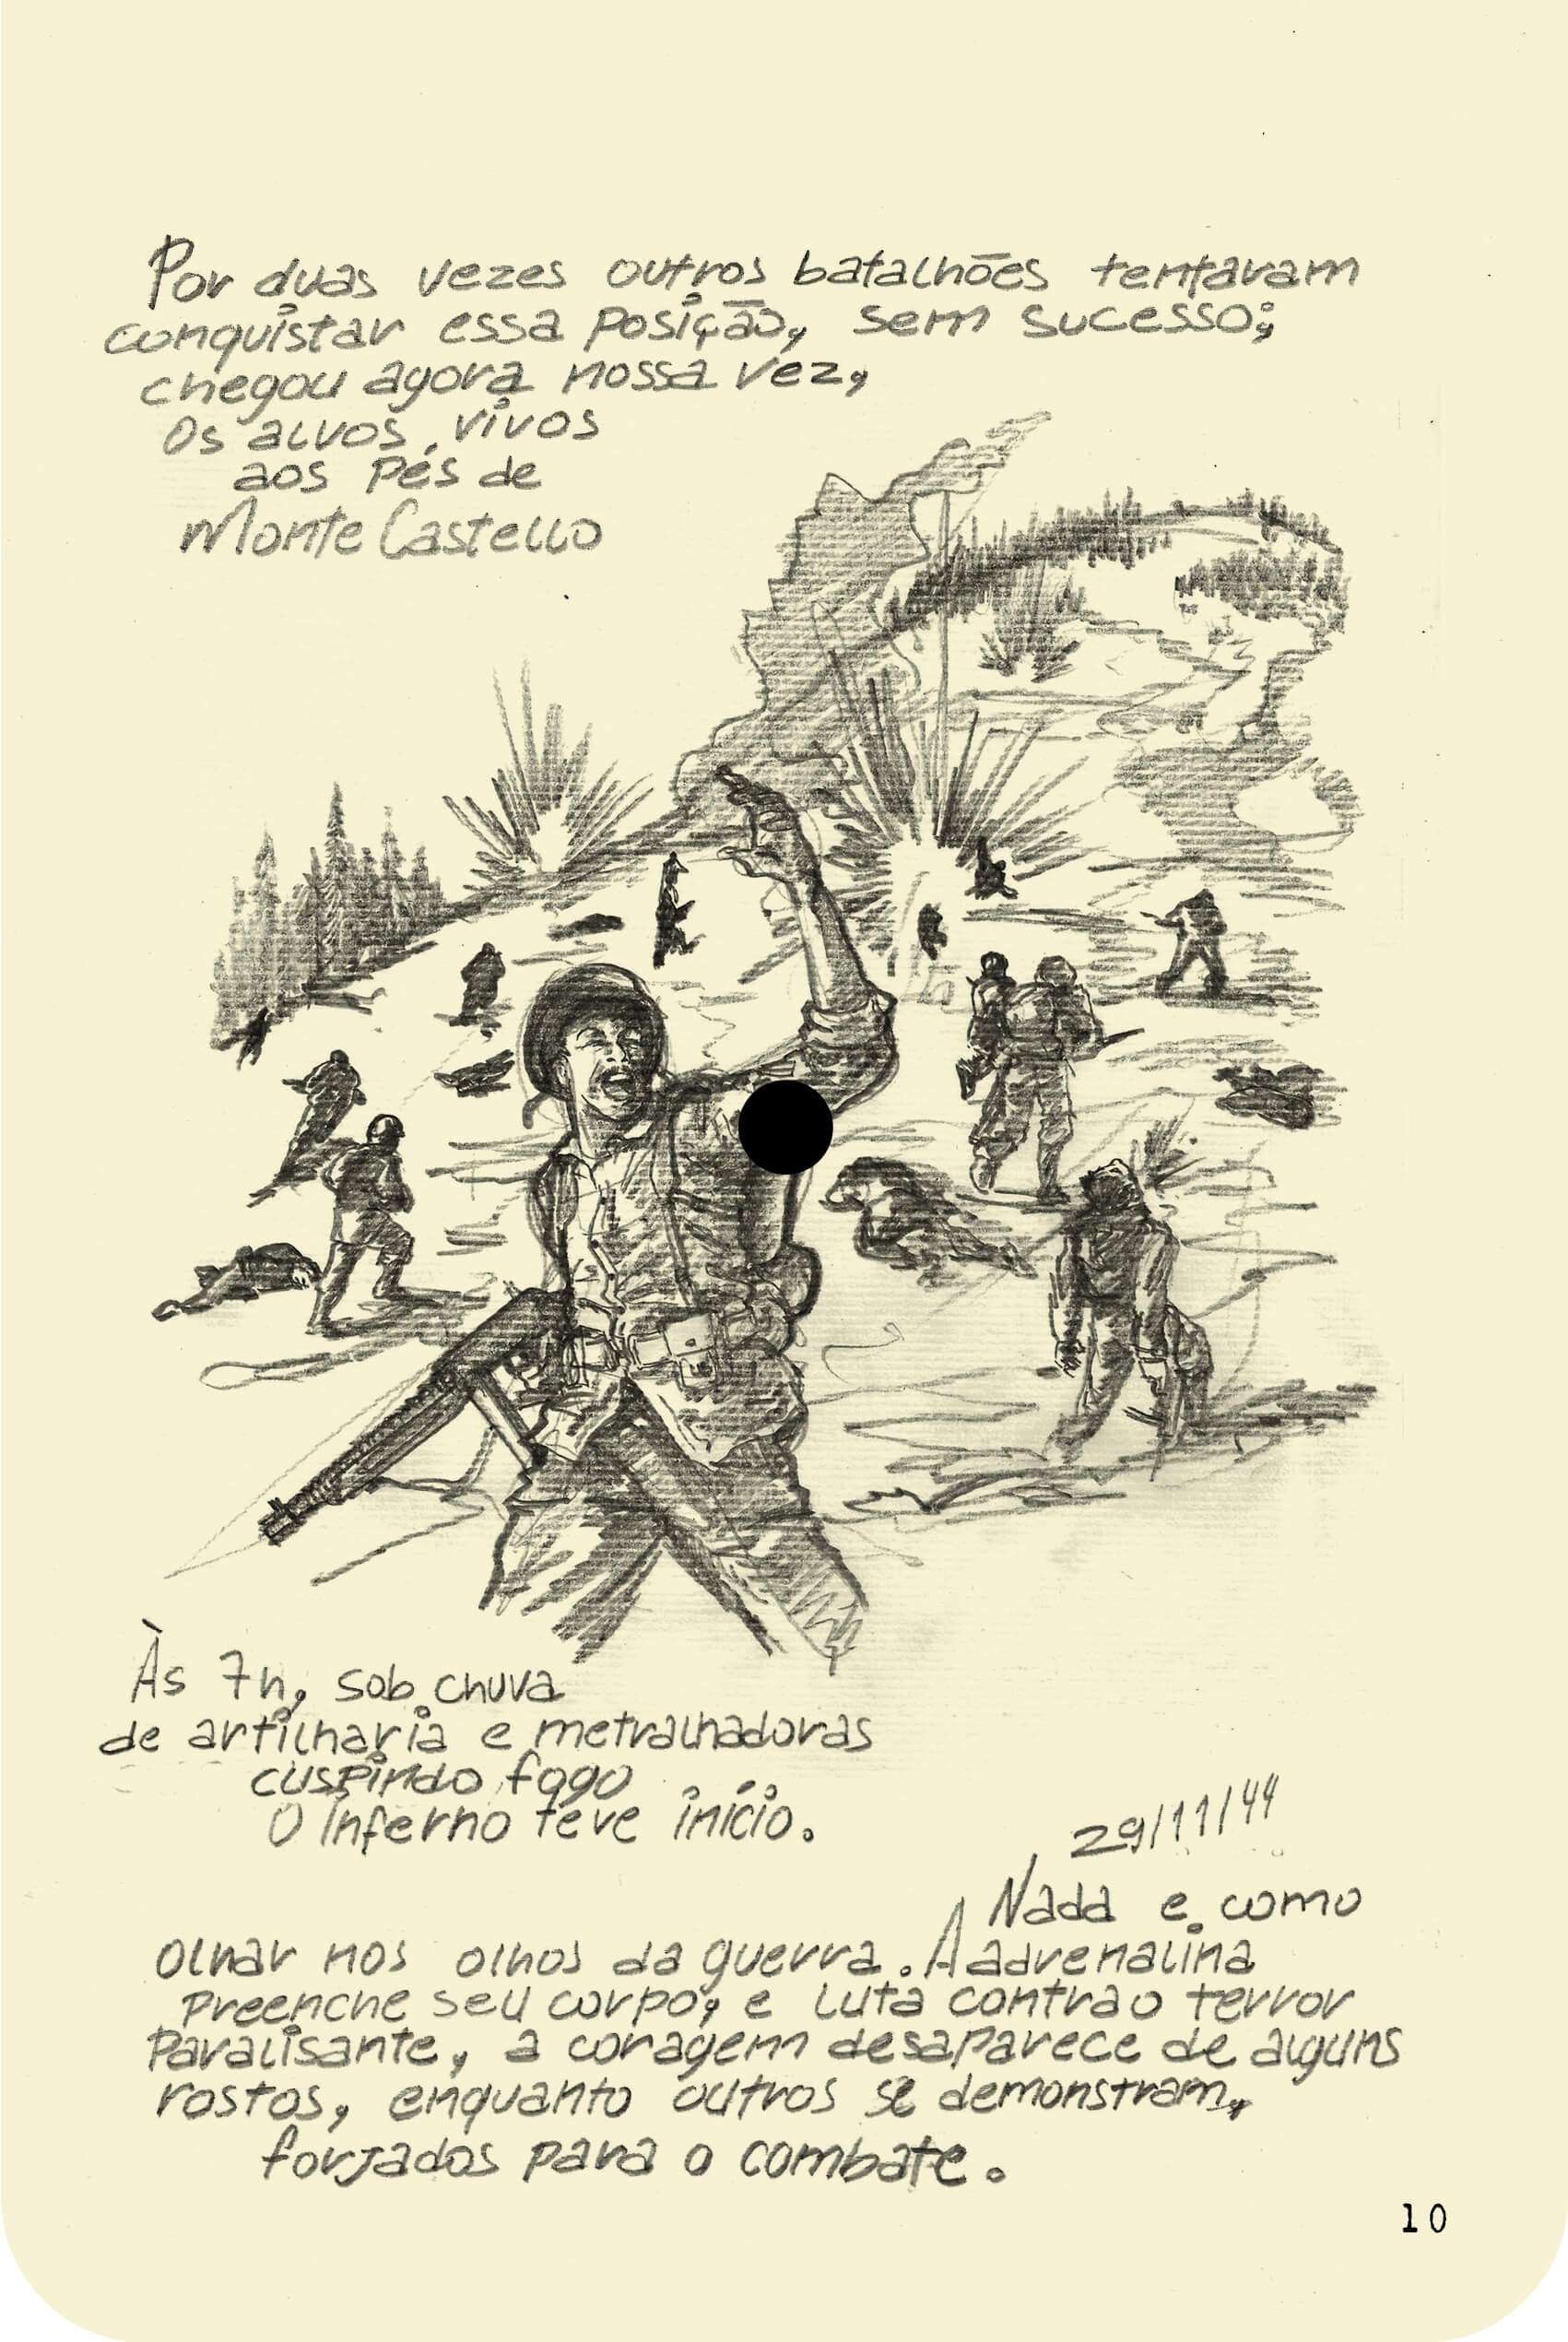 Por duas vezes outros batalhões tentaram
conquistar essa posição, sem sucesso;
chegou agora nossa vez,
Os alvos vivos
aos pés de
Monte Castello
Às 7h, sob chuva
de artilharia e metralhadoras
cuspindo fogo
O Inferno teve início.
29/11/44
Nada e como
olhar nos olhos da guerra. A adrenalina
preenche seu corpo, e luta contra o terror
paralisante, a coragem desaparece de alguns
rostos, enquanto outros se demonstram,
forjados para o combate.
10